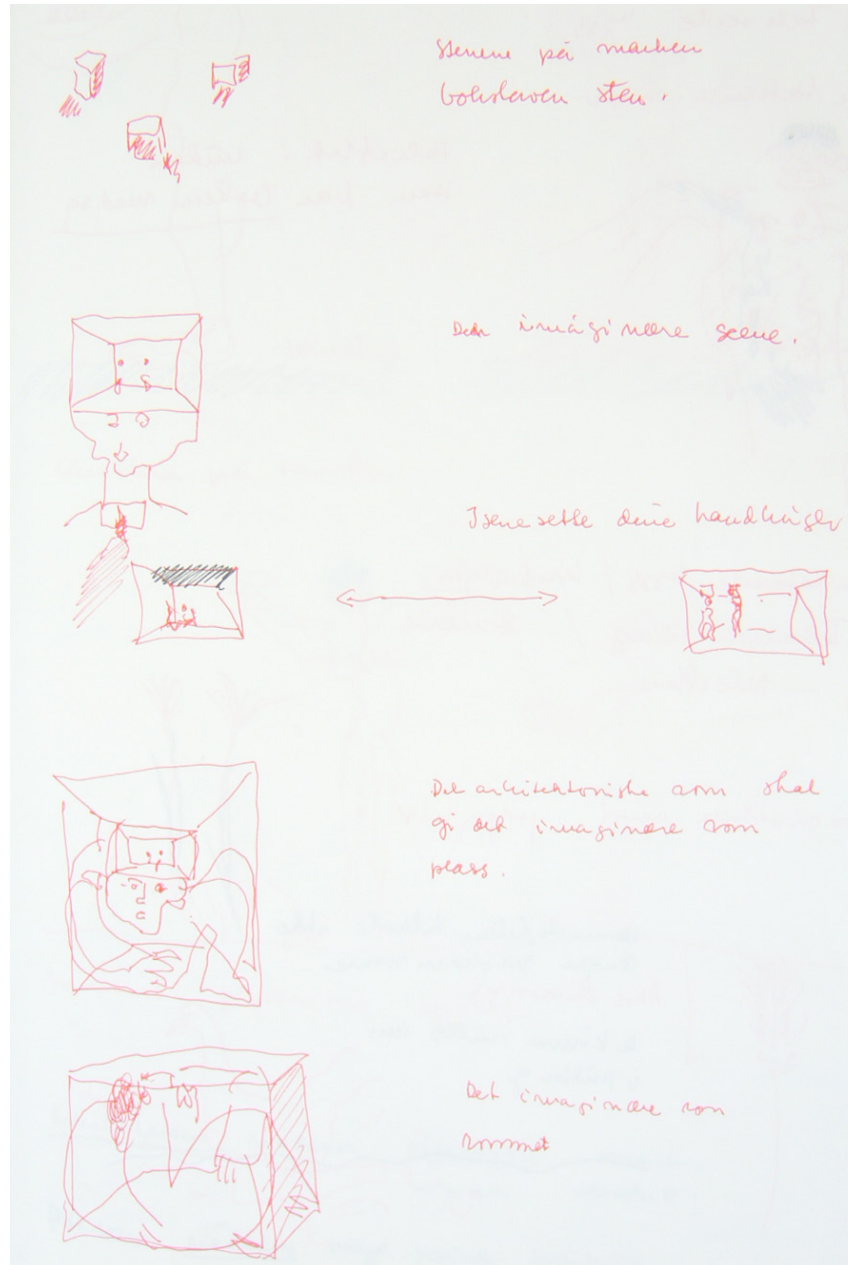 Stenene på marken
sten.
Den imaginære scene.
Iscenesette dine handlinger
Det arkitektoniske rom skal
gi det imaginære rom
plass.
Det imaginære rom
rommet